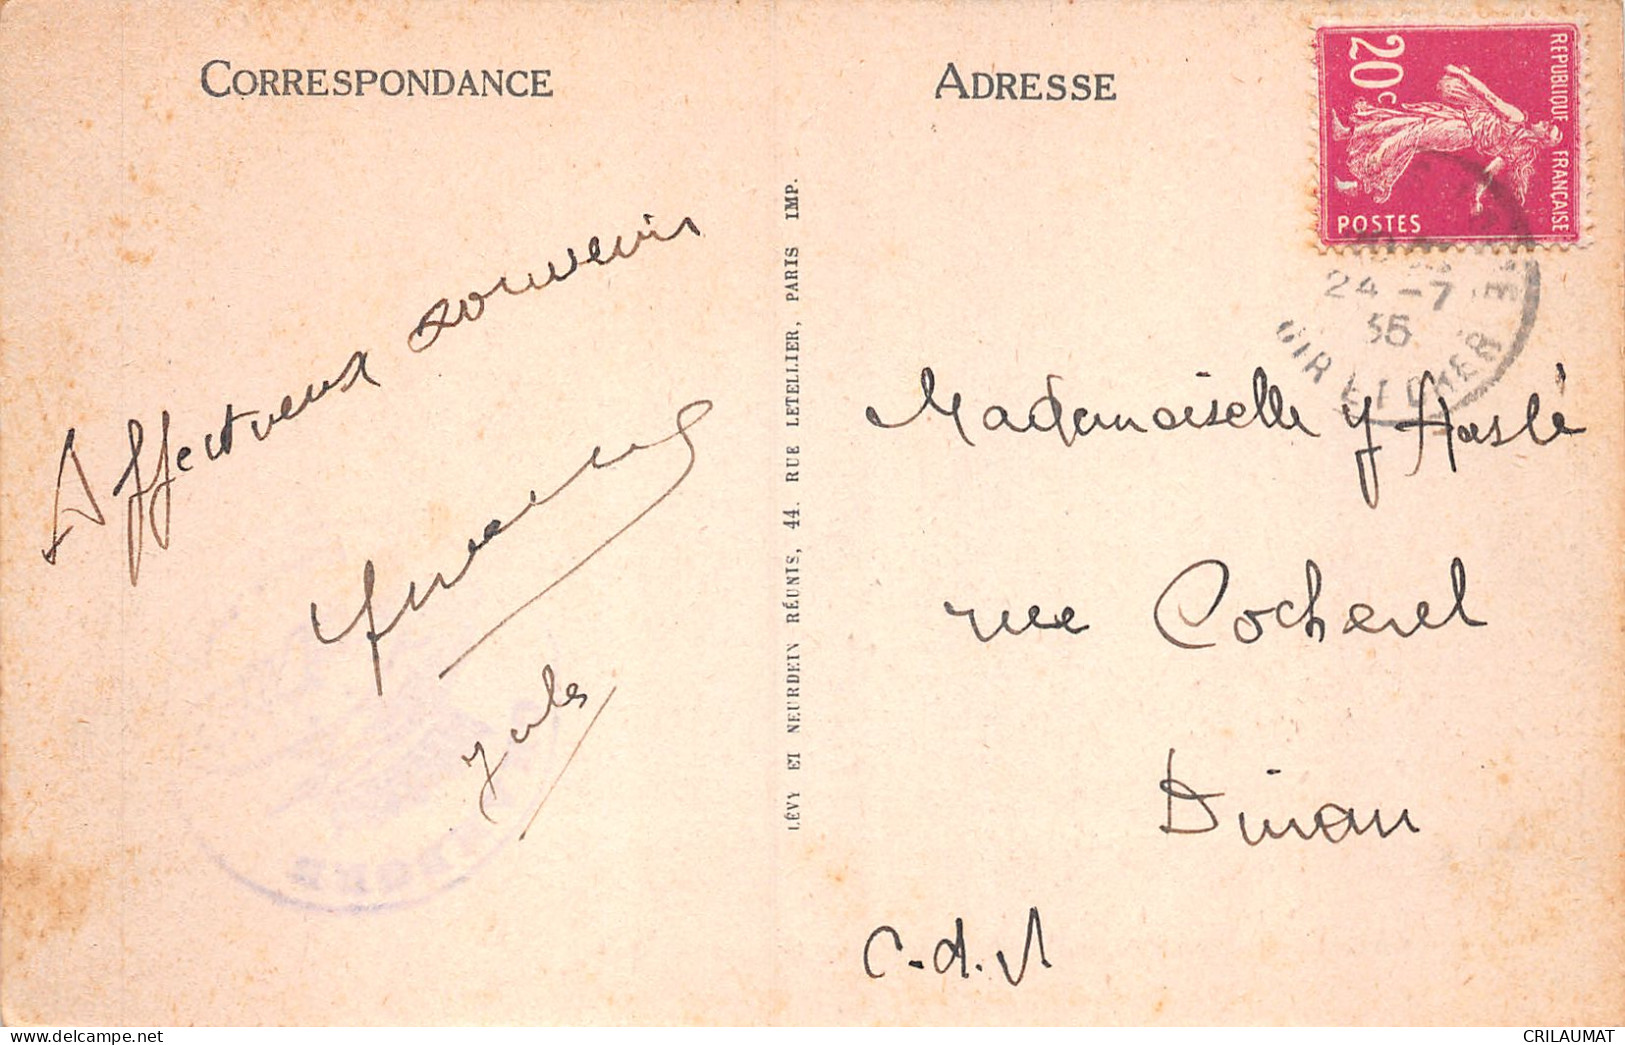 CORRESPONDANCE
ADRESSE
20c
REPUBLIQUE FRANCAISE
POSTES
24 -7
35
LOIR ET CHER
Affectueux souvenir
Jules
LÉVY ET NEURDEIN RÉUNIS, 44. RUE LETELLIER, PARIS IMP.
Mademoiselle Y Haslé
rue Cocherel
Dinan
C.d.N
CRILAUMAT